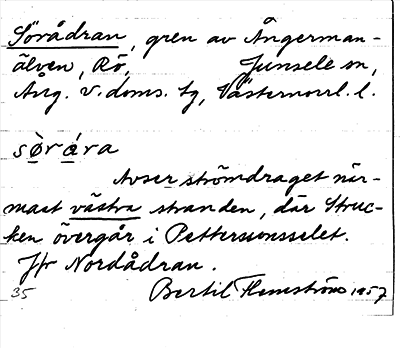 Sörådran, gren av Ångerman-
älven, Rö, Junsele sn,
Ång. v. doms. tg, Västernorrl. l.
sø̀rára
Avser strömdraget när-
mast västra stranden, där Struc-
ken övergår i Petterssonsselet.
Jfr Nordådran.
35 Bertil Flemström 1957